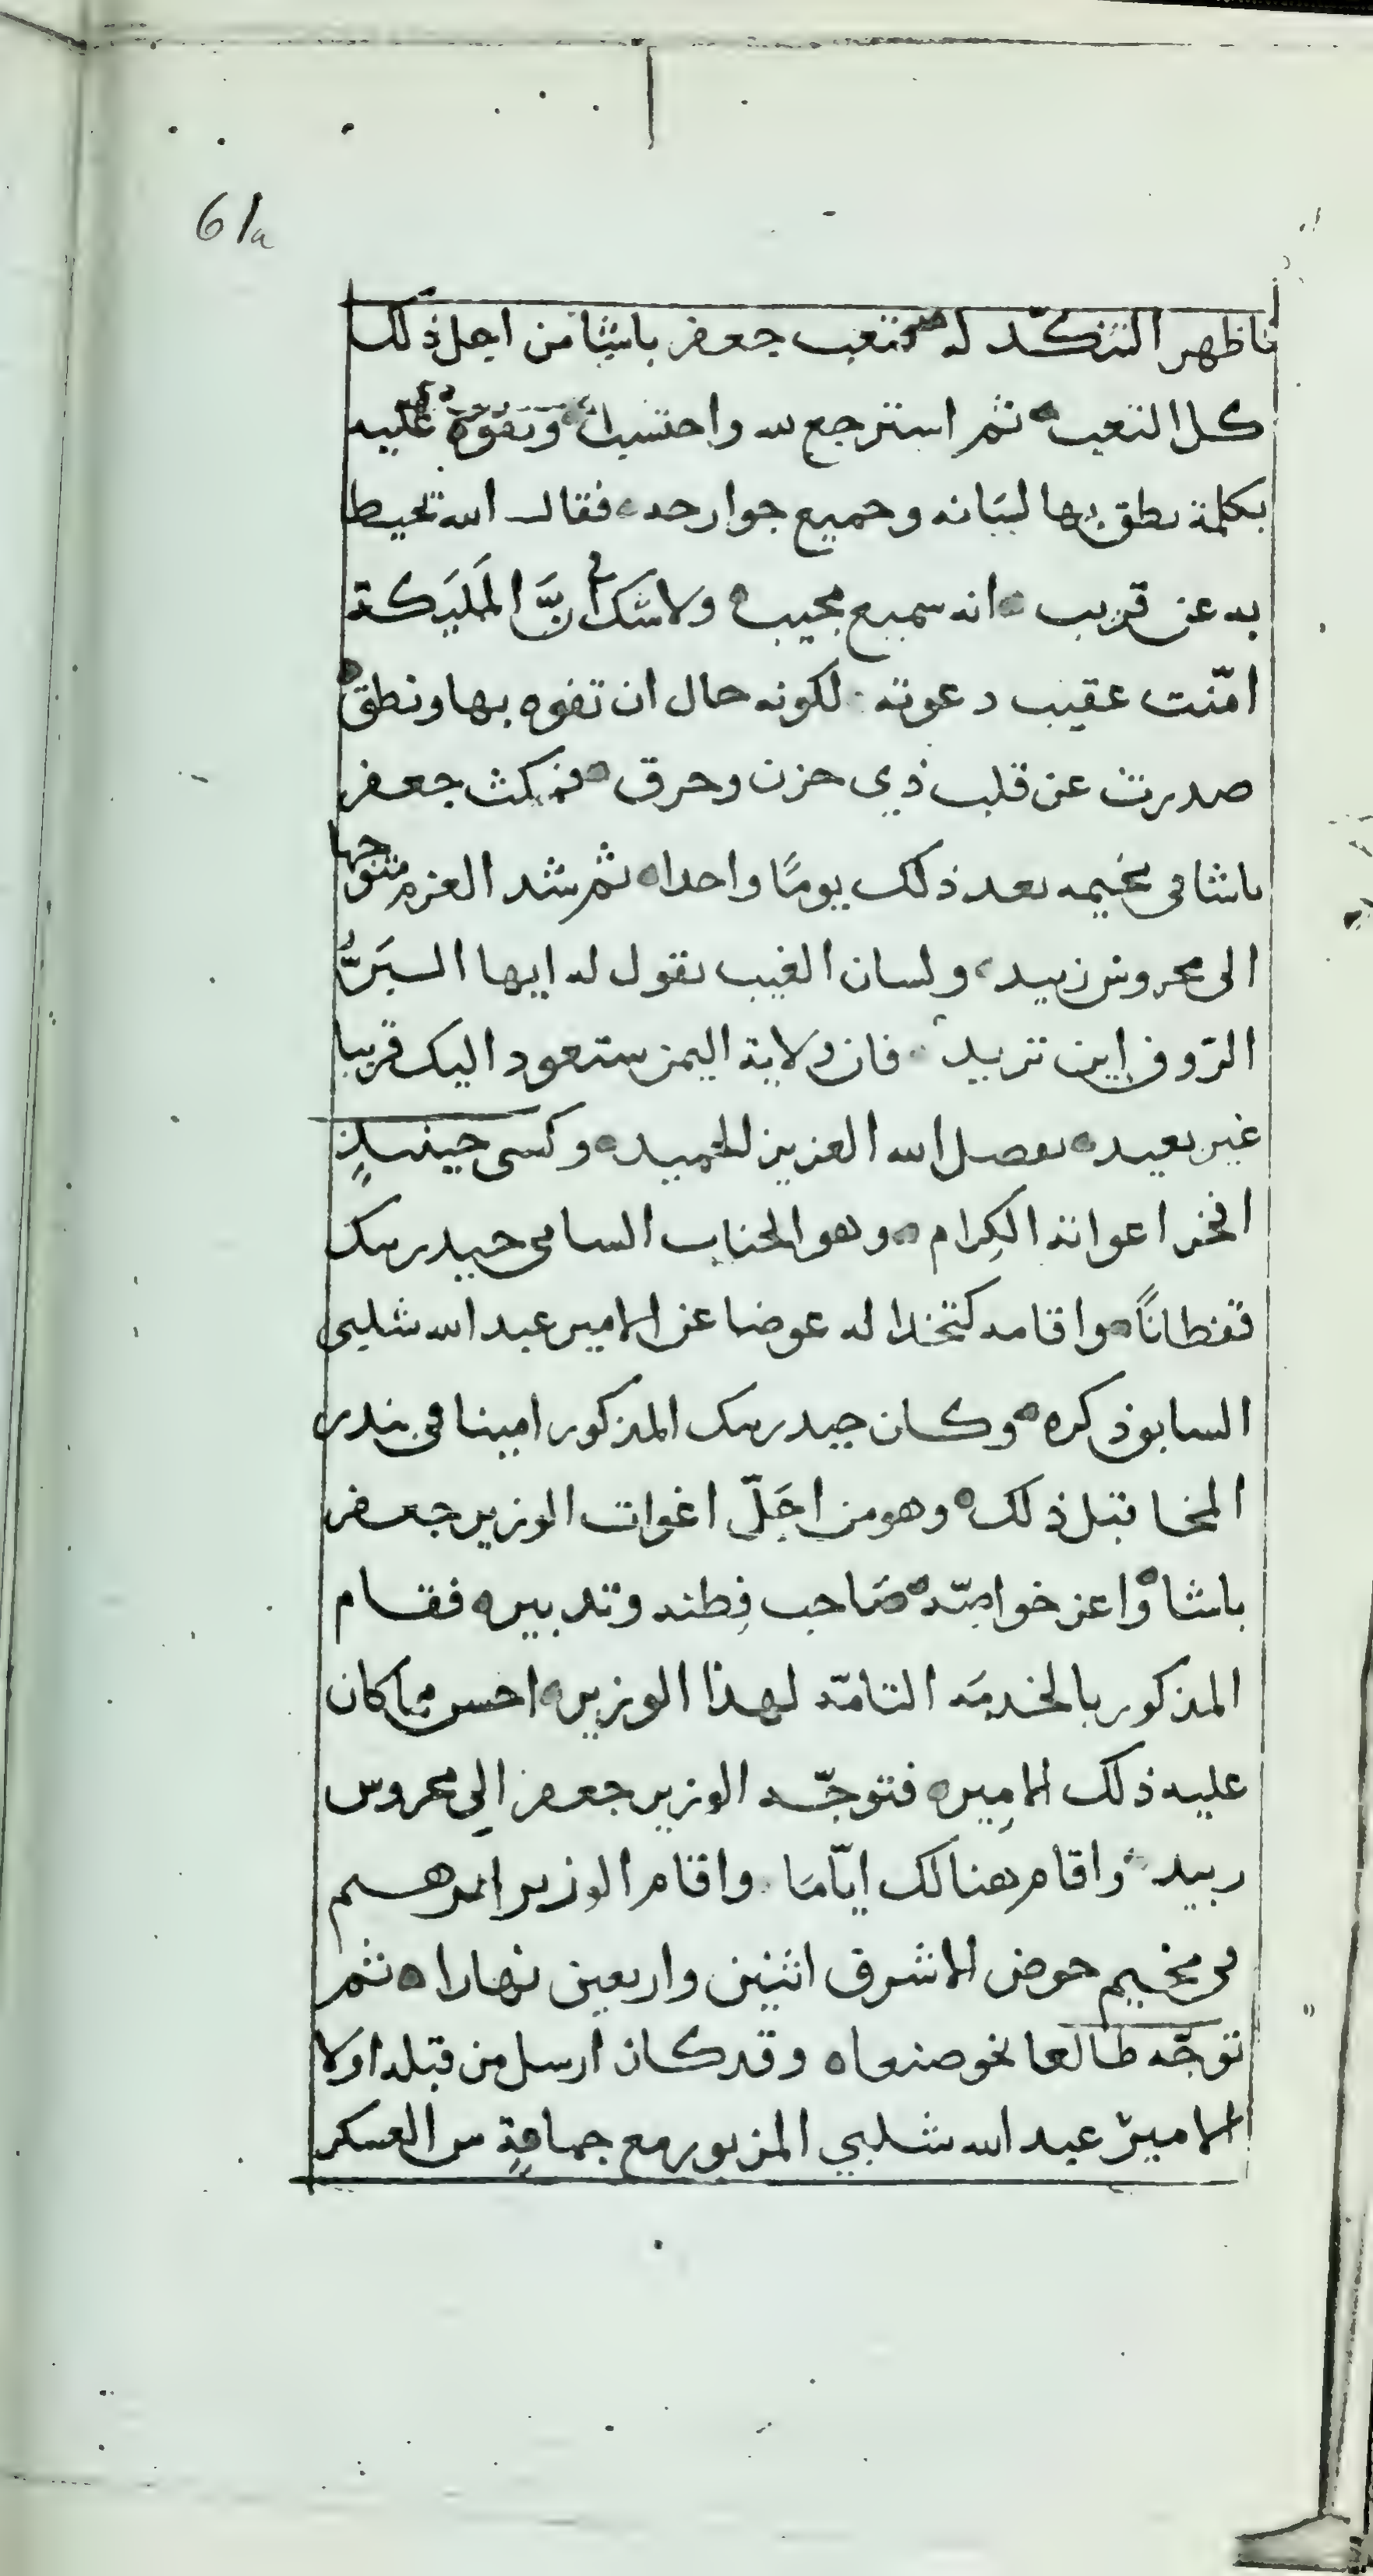 61a
فاظهر التنكد له فتعب جعفر باشا من اجل ذلك
كل التعب ثم استرجع لله واحتسب وتفوّه عليه
بكلمة نطق بها لسَانه وجميع جوارحه فقال الله تحيط
به عن قريب انه سميع مجيب ولا شك انَّ المَليَكة
امّنت عقيب دعوته لكونه حال ان تفوه بها ونطق
صدرت عن قلب ذي حزن وحرق فمكث جعفر
باشا في مخيمه بعد ذلك يومًا واحدا ثم شد العزم متوجها
الى محروس زبيد ولسان الغيب يقول له ايها السَريُّ
الرّوف اين تريد فان ولاية اليمن ستعود اليك قريبا
غير بعيد بفضل الله العزيز الحميد وكسى حينيذٍ
افخر اعوانه الكِرام وهو الجناب السامي حيدر بيك
قفطانًا واقامه كتخدا له عوضا عن الامير عبد الله شلبي
السابق ذكره وكان حيدر بيك المذكور امينا في بندر
المخا قبل ذلك وهو من اجَلّ اغوات الوزير جعفر
باشا واعز خواصّه صَاحب فِطنه وتدبير فقام
المذكور بالخدمَه التامّه لهذا الوزير احسن مما كان
عليه ذلك الامِير فتوجّه الوزير جعفر الي محروس
زبيد واقام هنالك ايّامَا واقام الوزير ابرهيم
في مخيم حوض الاشرق اثنين واربعين نهارا ثم
توجّه طالعا نحو صنعاه وقد كان ارسل من قبله اولا
الامير عبد الله شلبي المزبور مع جماعةٍ من العسكر